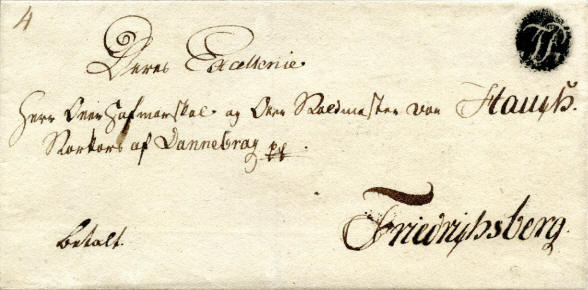 4
Deres Excellenie
Herr Over Hofmarskal og Over Staldmester von Hauch.
Storkors af Dannebrog pp
Friedrichsberg.
betalt.